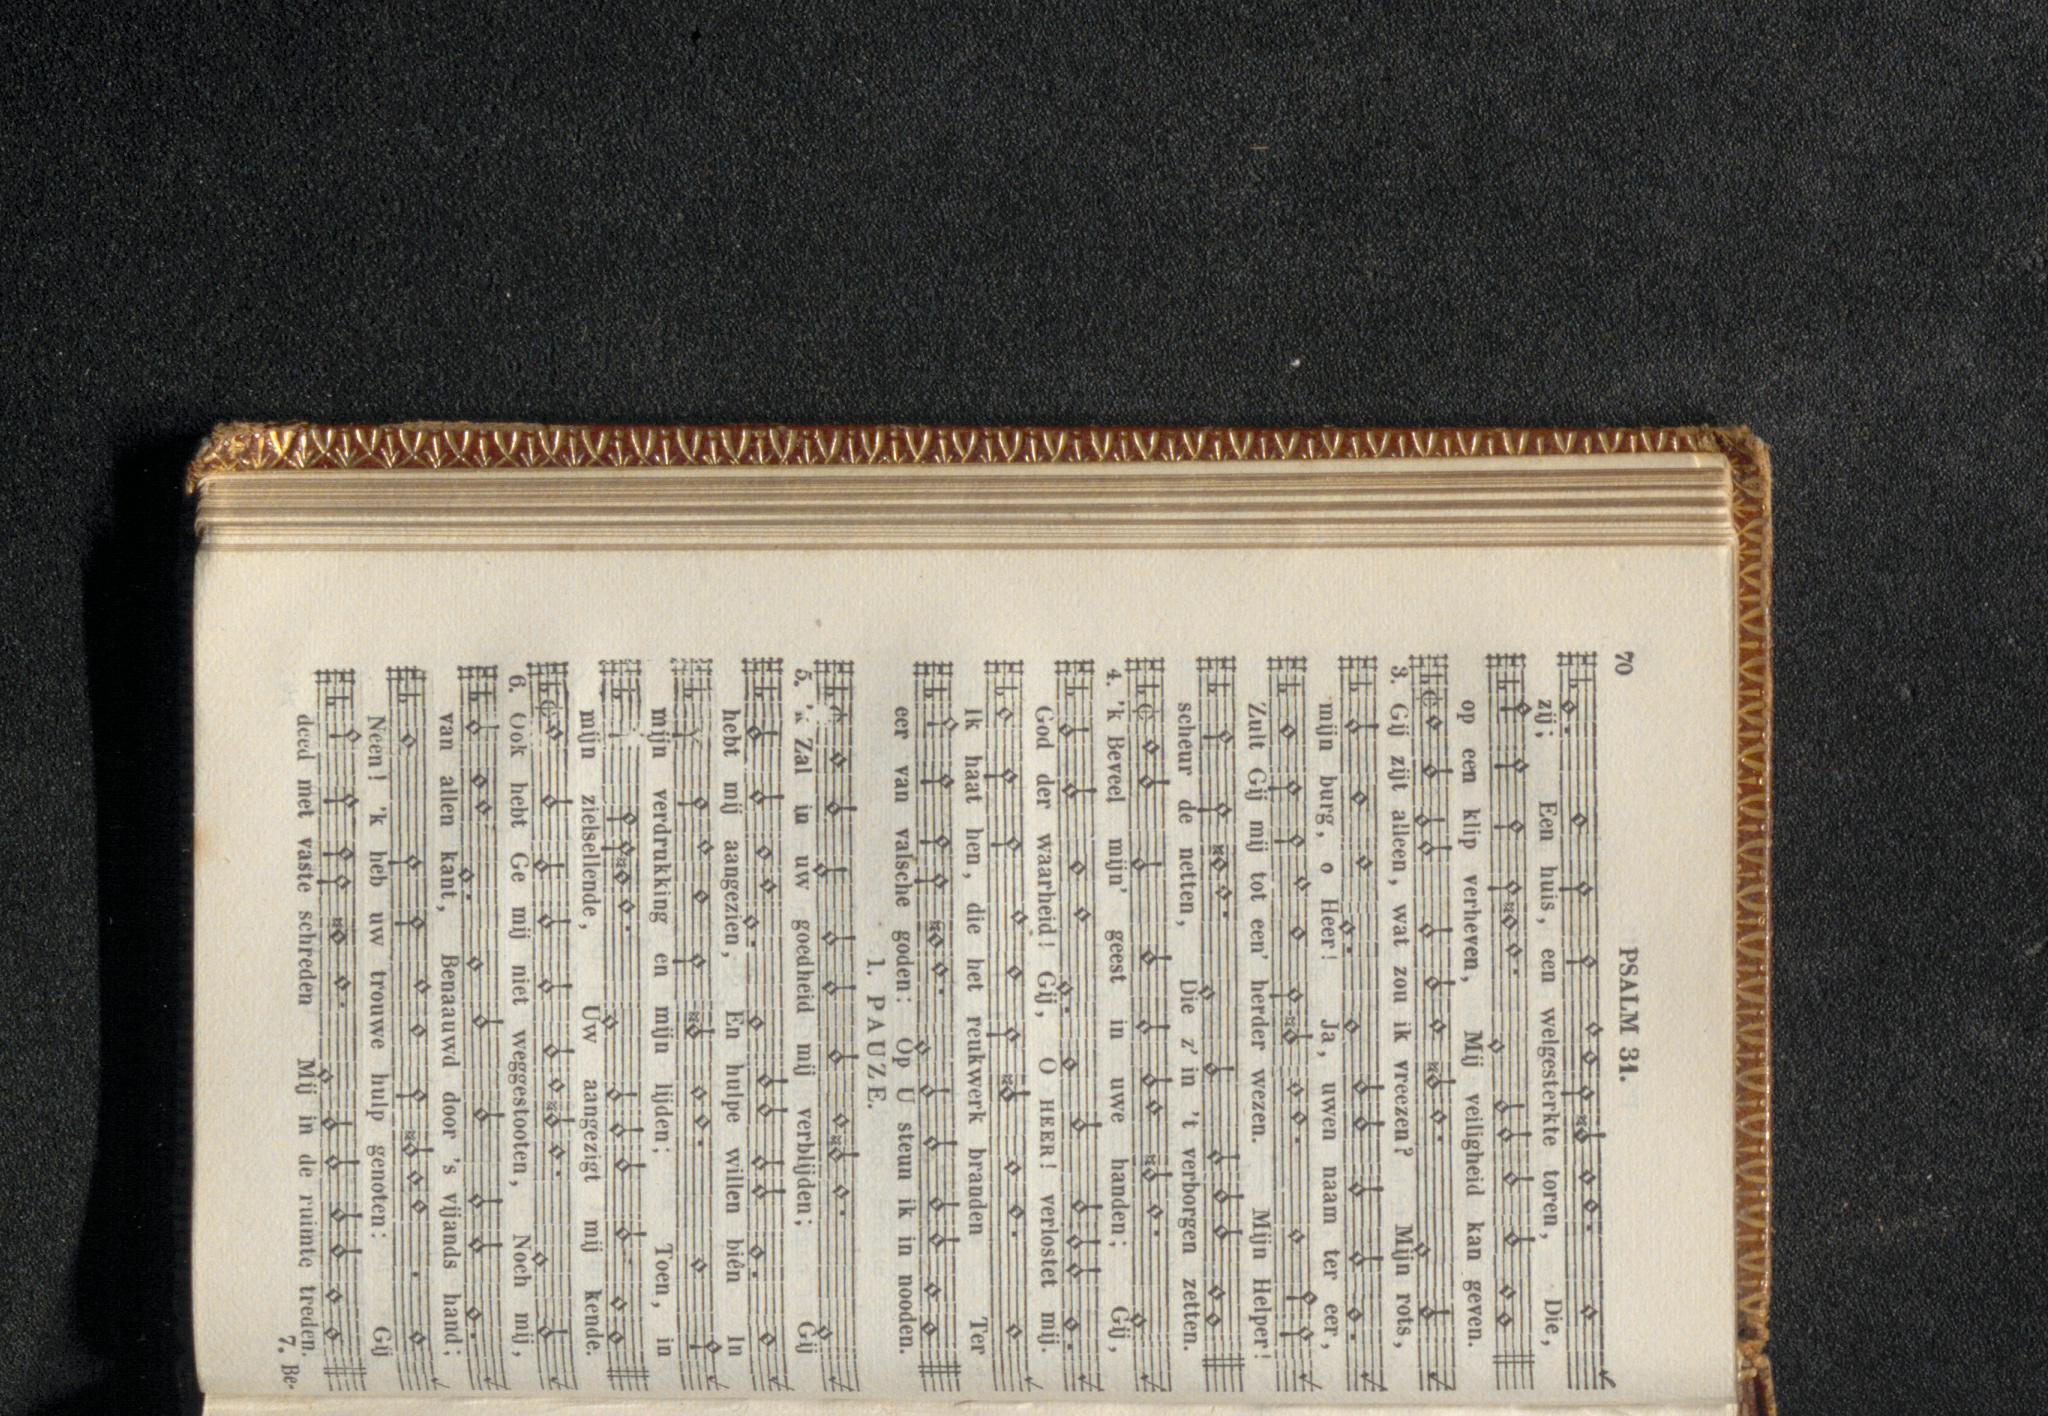 70
PSALM 31.
zij; Een huis, een welgesterkte toren, Die,
op een klip verheven, Mij veiligheid kan geven.
3. Gij zijt alleen, wat zou ik vreezen? Mijn rots,
mijn burg, o Heer! Ja, uwen naam ter eer,
Zult Gij mij tot een' herder wezen. Mijn Helper!
scheur de netten, Die z' in 't verborgen zetten.
4. 'k Beveel mijn' geest in uwe handen; Gij,
God der waarheid! Gij, O HEER! verlostet mij.
Ik haat hen, die het reukwerk branden Ter
eer van valsche goden: Op U steun ik in nooden.
1. PAUZE.
5. 'k Zal in uw goedheid mij verblijden; Gij
hebt mij aangezien, En hulpe willen biên In
mijn verdrukking en mijn lijden; Toen, in
mijn zielsellende, Uw aangezigt mij kende.
6. Ook hebt Ge mij niet weggestooten, Noch mij,
van allen kant, Benaauwd door 's vijands hand;
Neen! 'k heb uw trouwe hulp genoten: Gij
deed met vaste schreden Mij in de ruimte treden.
7. Be-